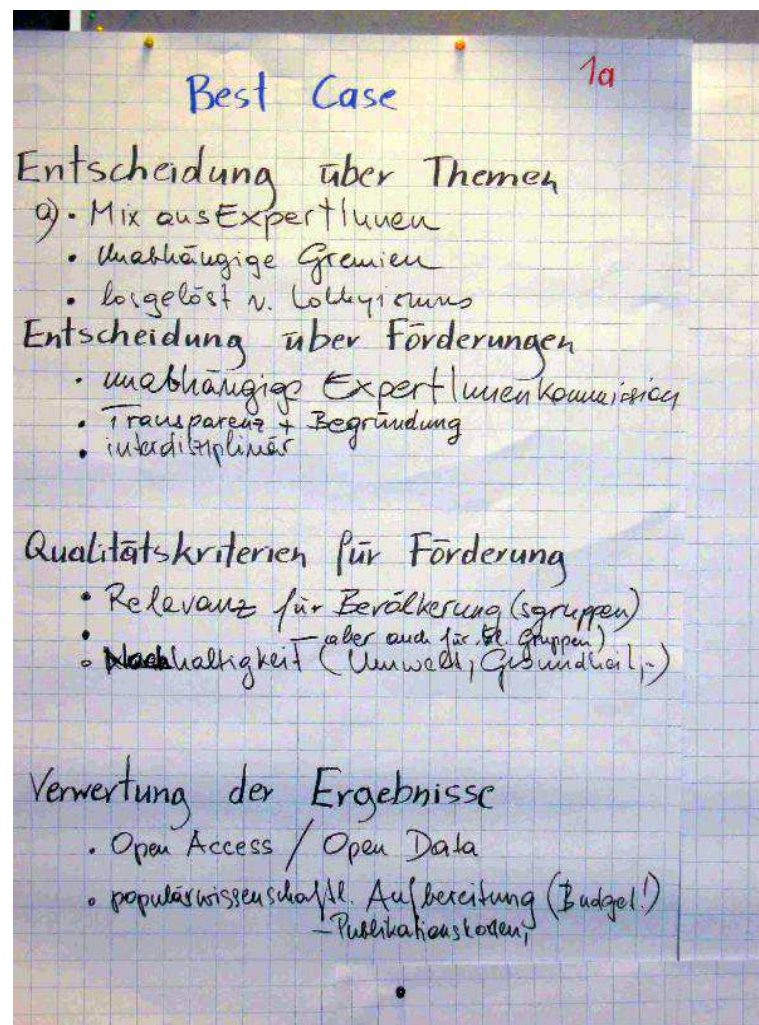 1a
Best Case
Entscheidung über Themen
a) • Mix aus ExpertInnen
• Unabhängige Gremien
• losgelöst v. Lobbyismus
Entscheidung über Förderungen
• unabhängige ExpertInnenkommission
• Transparenz + Begründung
• interdisziplinär
Qualitätskriterien für Förderung
• Relevanz für Bevölkerung(sgruppen)
• — aber auch für kl. Gruppen)
• Nachhaltigkeit (Umwelt, Gesundheit,-)
Verwertung der Ergebnisse
• Open Access / Open Data
• populärwissenschaftl. Aufbereitung (Budget!)
– Publikationskosten,